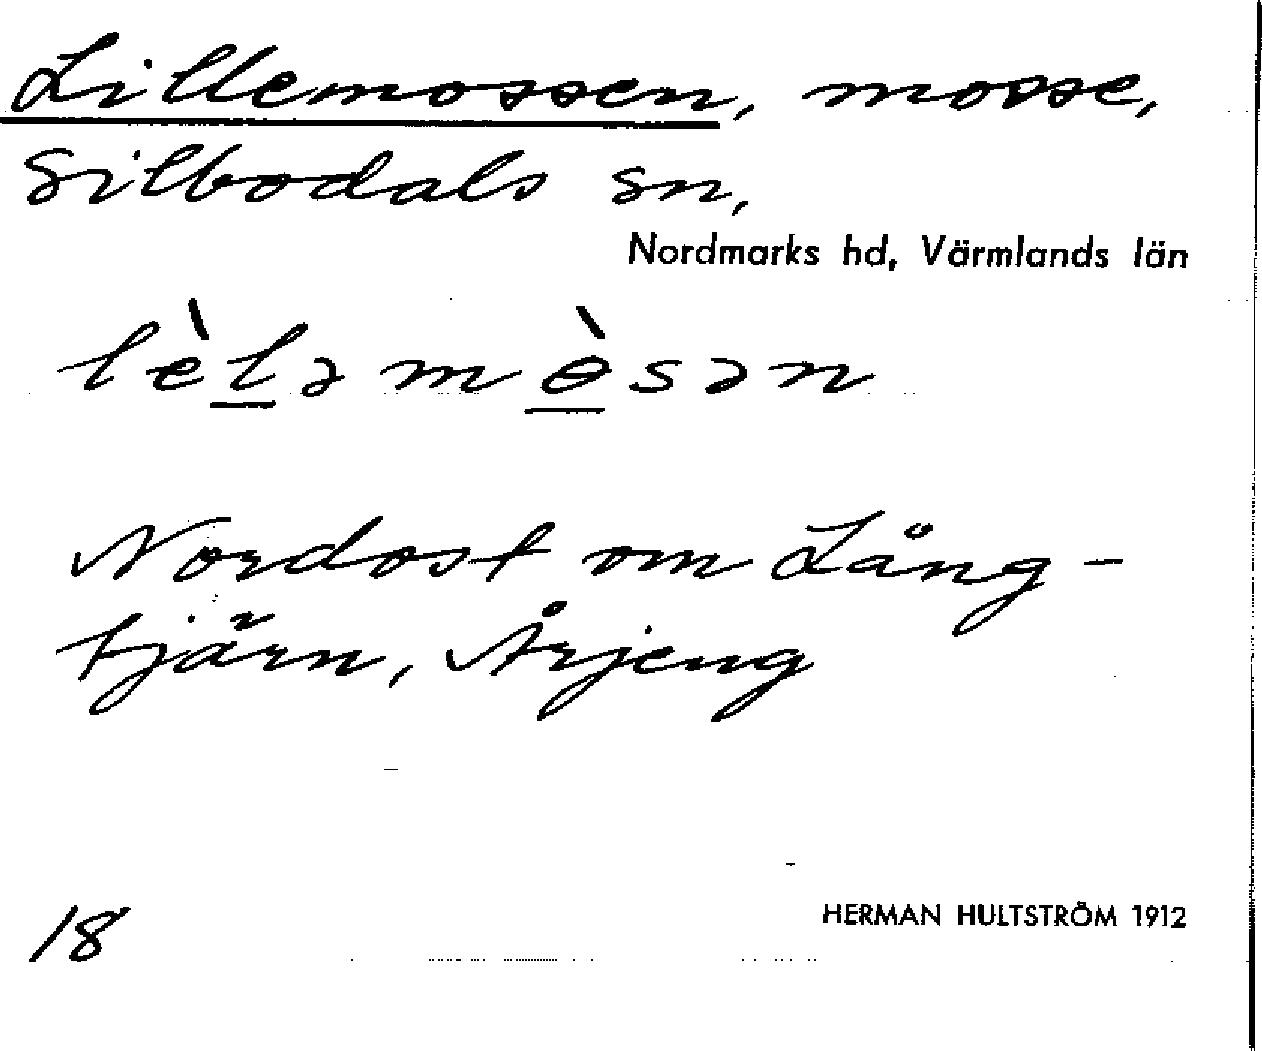 Lillemossen, mosse,
Silbodals sn,
Nordmarks hd, Värmlands län
lèləmɵ̀sən
Nordost om Lång-
tjärn, Årjeng
18
HERMAN HULTSTRÖM 1912